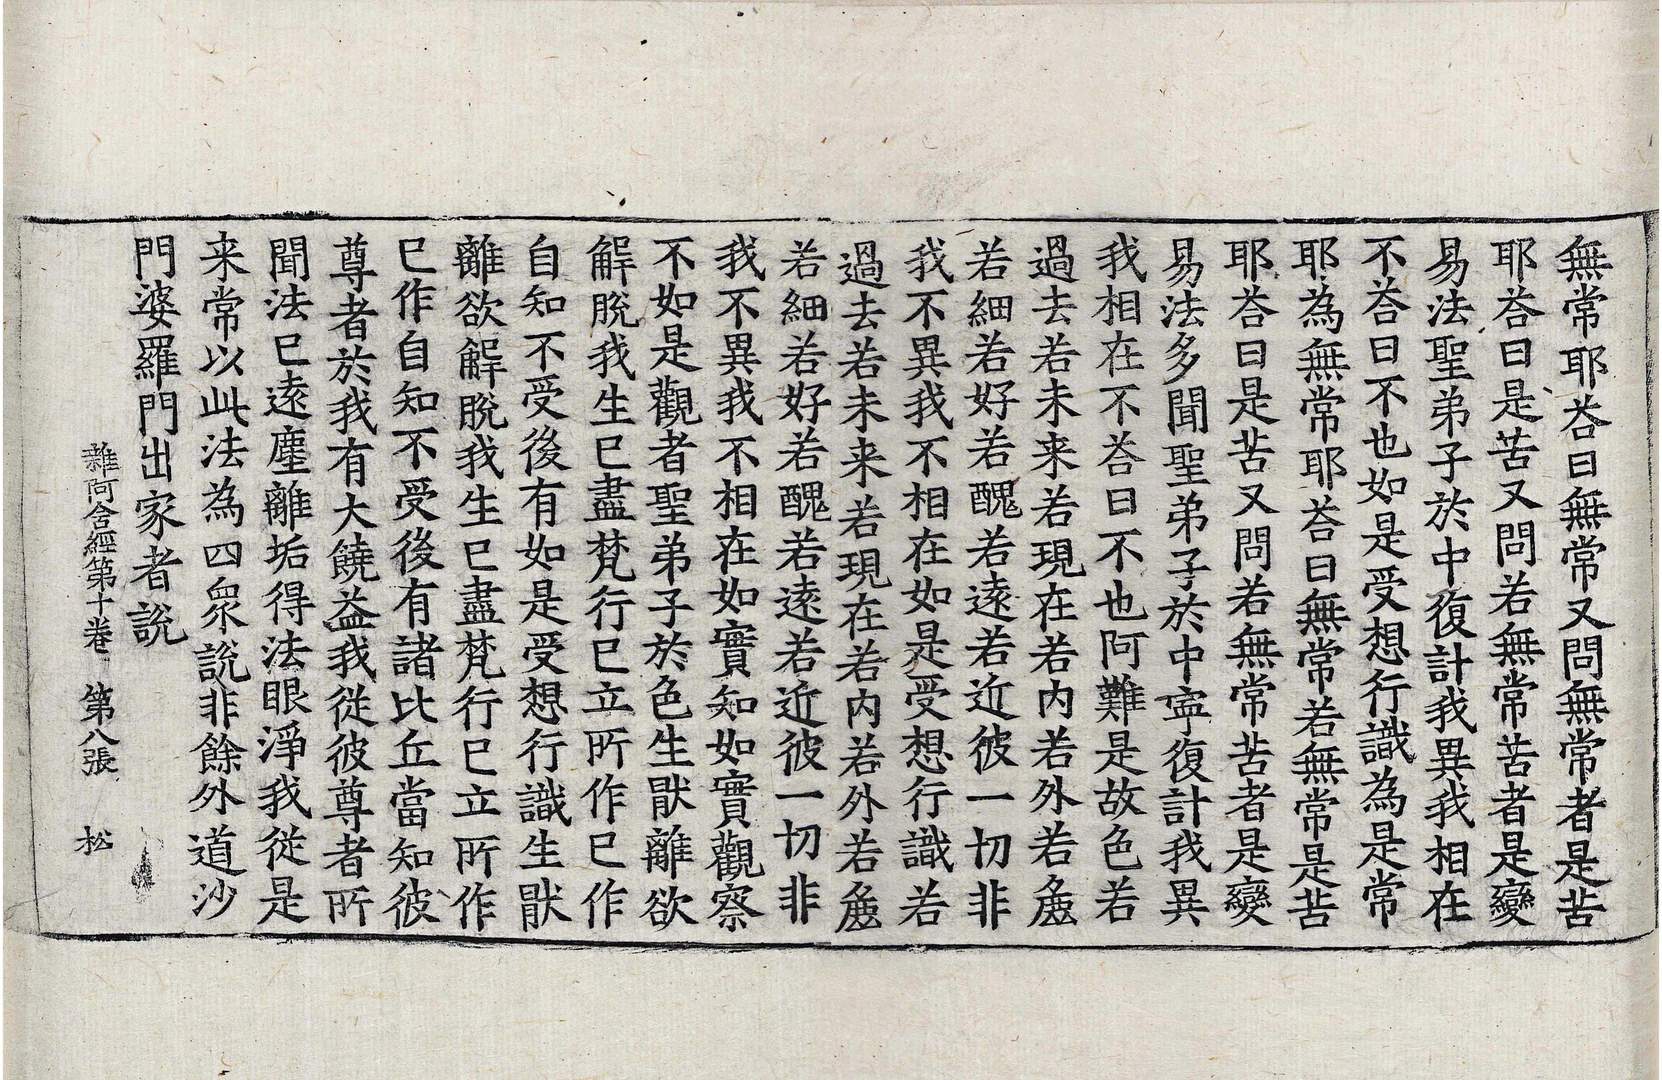 無常耶荅曰無常又問無常者是苦
耶荅曰是苦又問若無常苦者是變
易法聖弟子於中復計我異我相在
不荅曰不也如是受想行識為是常
耶為無常耶荅曰無常若無常是苦
耶荅曰是苦又問若無常苦者是變
易法多聞聖弟子於中寧復計我異
我相在不荅曰不也阿難是故色若
過去若未来若現在若内若外若麁
若細若好若醜若遠若近彼一切非
我不異我不相在如是受想行識若
過去若未来若現在若内若外若麁
若細若好若醜若遠若近彼一切非
我不異我不相在如實知如實觀察
不如是觀者聖弟子於色生猒離欲
解脫我生已盡梵行已立所作已作
自知不受後有如是受想行識生猒
離欲解脫我生已盡梵行已立所作
已作自知不受後有諸比丘當知彼
尊者於我有大饒益我從彼尊者所
聞法已遠塵離垢得法眼淨我從是
来常以此法為四眾說非餘外道沙
門婆羅門出家者說
雜阿含經第十卷 第八張 松